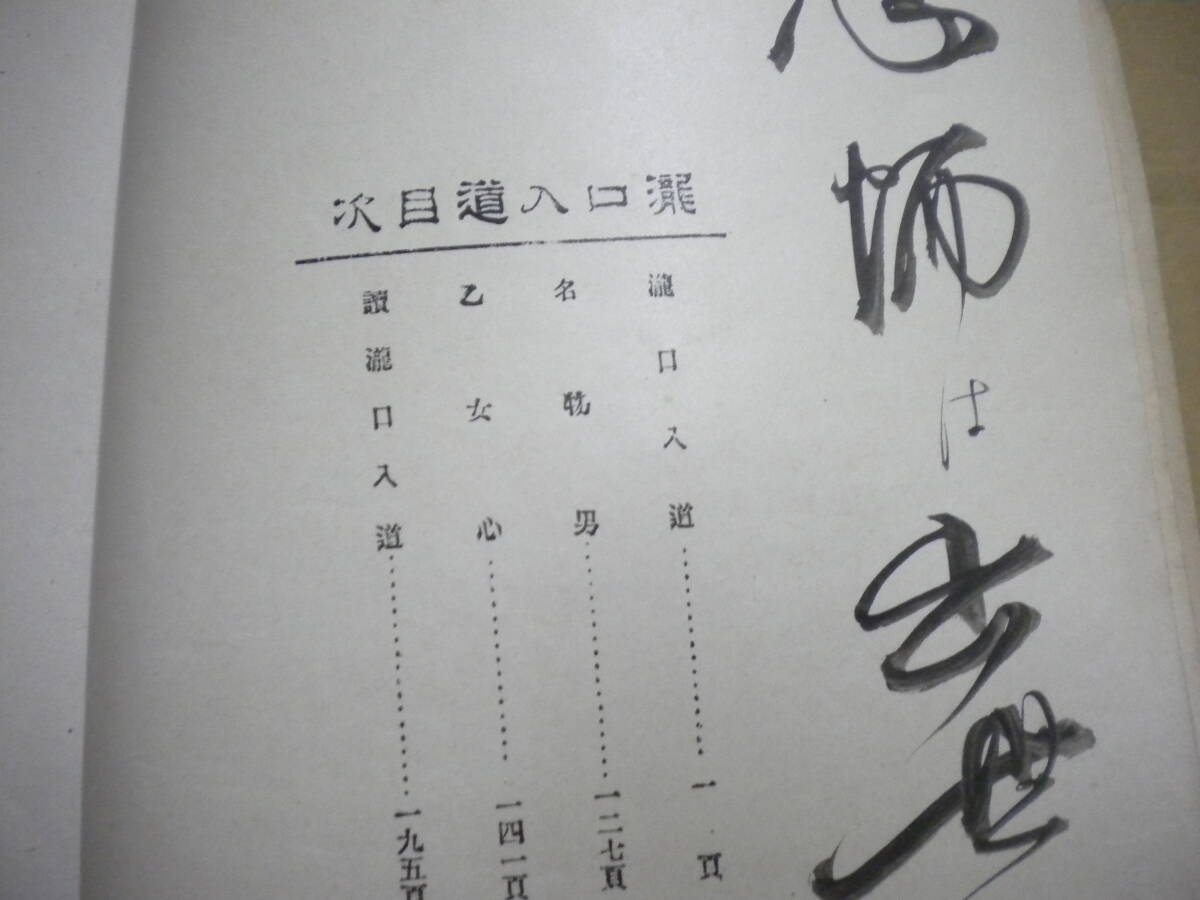 恩師は去世
瀧口入道目次
瀧口入道…………一頁
名物男…………一二七頁
乙女心…………一四一頁
讀瀧口入道…………一九五頁